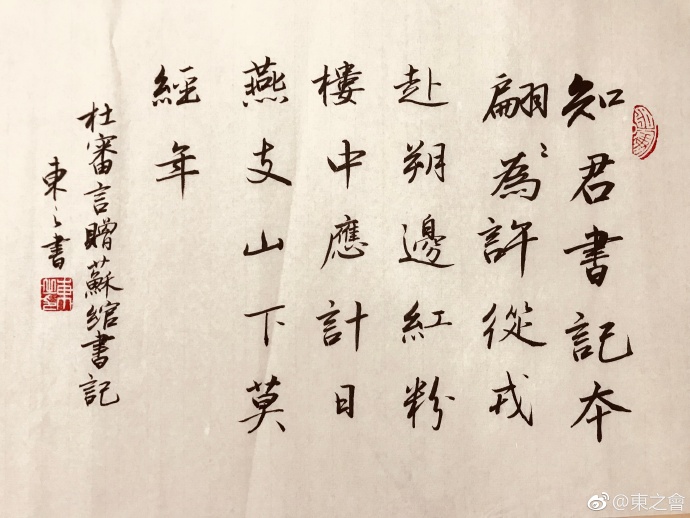 知君書記本
翩〻為許從戎
赴朔邊紅粉
樓中應計日
燕支山下莫
經年
杜審言贈蘇綰書記
東之書
@東之會